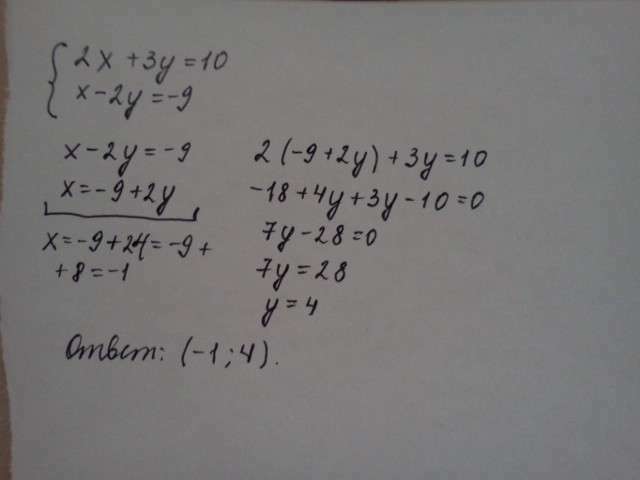 2x + 3y = 10
x - 2y = -9
x - 2y = -9
x = -9 + 2y
x = -9 + 24 = -9 +
+ 8 = -1
2(-9 + 2y) + 3y = 10
-18 + 4y + 3y - 10 = 0
7y - 28 = 0
7y = 28
y = 4
Ответ: (-1; 4).